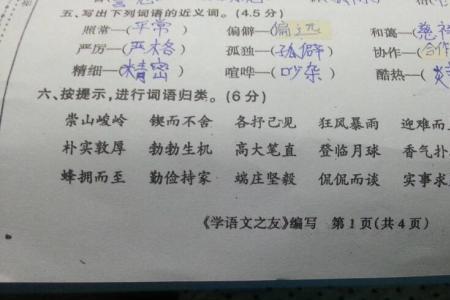 五、写出下列词语的近义词。(4.5分)
照常—(平常) 偏僻—(偏远) 和蔼—(慈祥
严厉—(严格) 孤独—(孤僻) 协作—(合作
精细—(精密) 喧哗—(吵杂) 酷热—(炎
六、按提示,进行词语归类。(6分)
崇山峻岭 锲而不舍 各抒己见 狂风暴雨 迎难而
朴实敦厚 勃勃生机 高大笔直 登临月球 香气扑
蜂拥而至 勤俭持家 端庄坚毅 侃侃而谈 实事求
《学语文之友》编写 第1页(共4页)